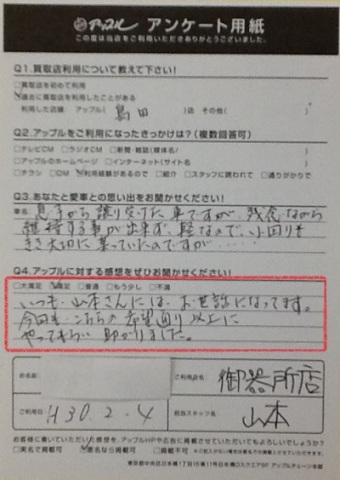 アップル アンケート用紙
この度は当店をご利用いただきありがとうございました。
Q1.買取店利用について教えて下さい!
□買取店を初めて利用
☑過去に買取店を利用したことがある
利用した店舗 アップル( 島田 )店 その他( )
Q2.アップルをご利用になったきっかけは?(複数回答可)
□テレビCM □ラジオCM □新聞・雑誌(媒体名/ )
□アップルのホームページ □インターネット(サイト名 )
□チラシ □DM ☑利用経験があるので □紹介 □スタッフに誘われて □通りがかりで
Q3.あなたと愛車との思い出をお聞かせください!
車名
息子から譲り受けた車ですが、残念ながら
維持する事が出来ず、軽なので、小回りも
きき大切に乗っていたのですが……
Q4.アップルに対する感想をぜひお聞かせください!
□大満足 ☑満足 □普通 □もう少し □不満
いつも山本さんには、お世話になってます。
今回も、こちらの希望通り以上に
やってもらい助かりました。
お名前
ご利用店名 御器所店
ご利用日 H30.2.4
担当スタッフ名 山本
お客様に書いていただいた感想を、アップルHPや広告に掲載させていただいてもよろしいでしょうか?
□実名で掲載可 ☑匿名なら掲載可 □掲載不可